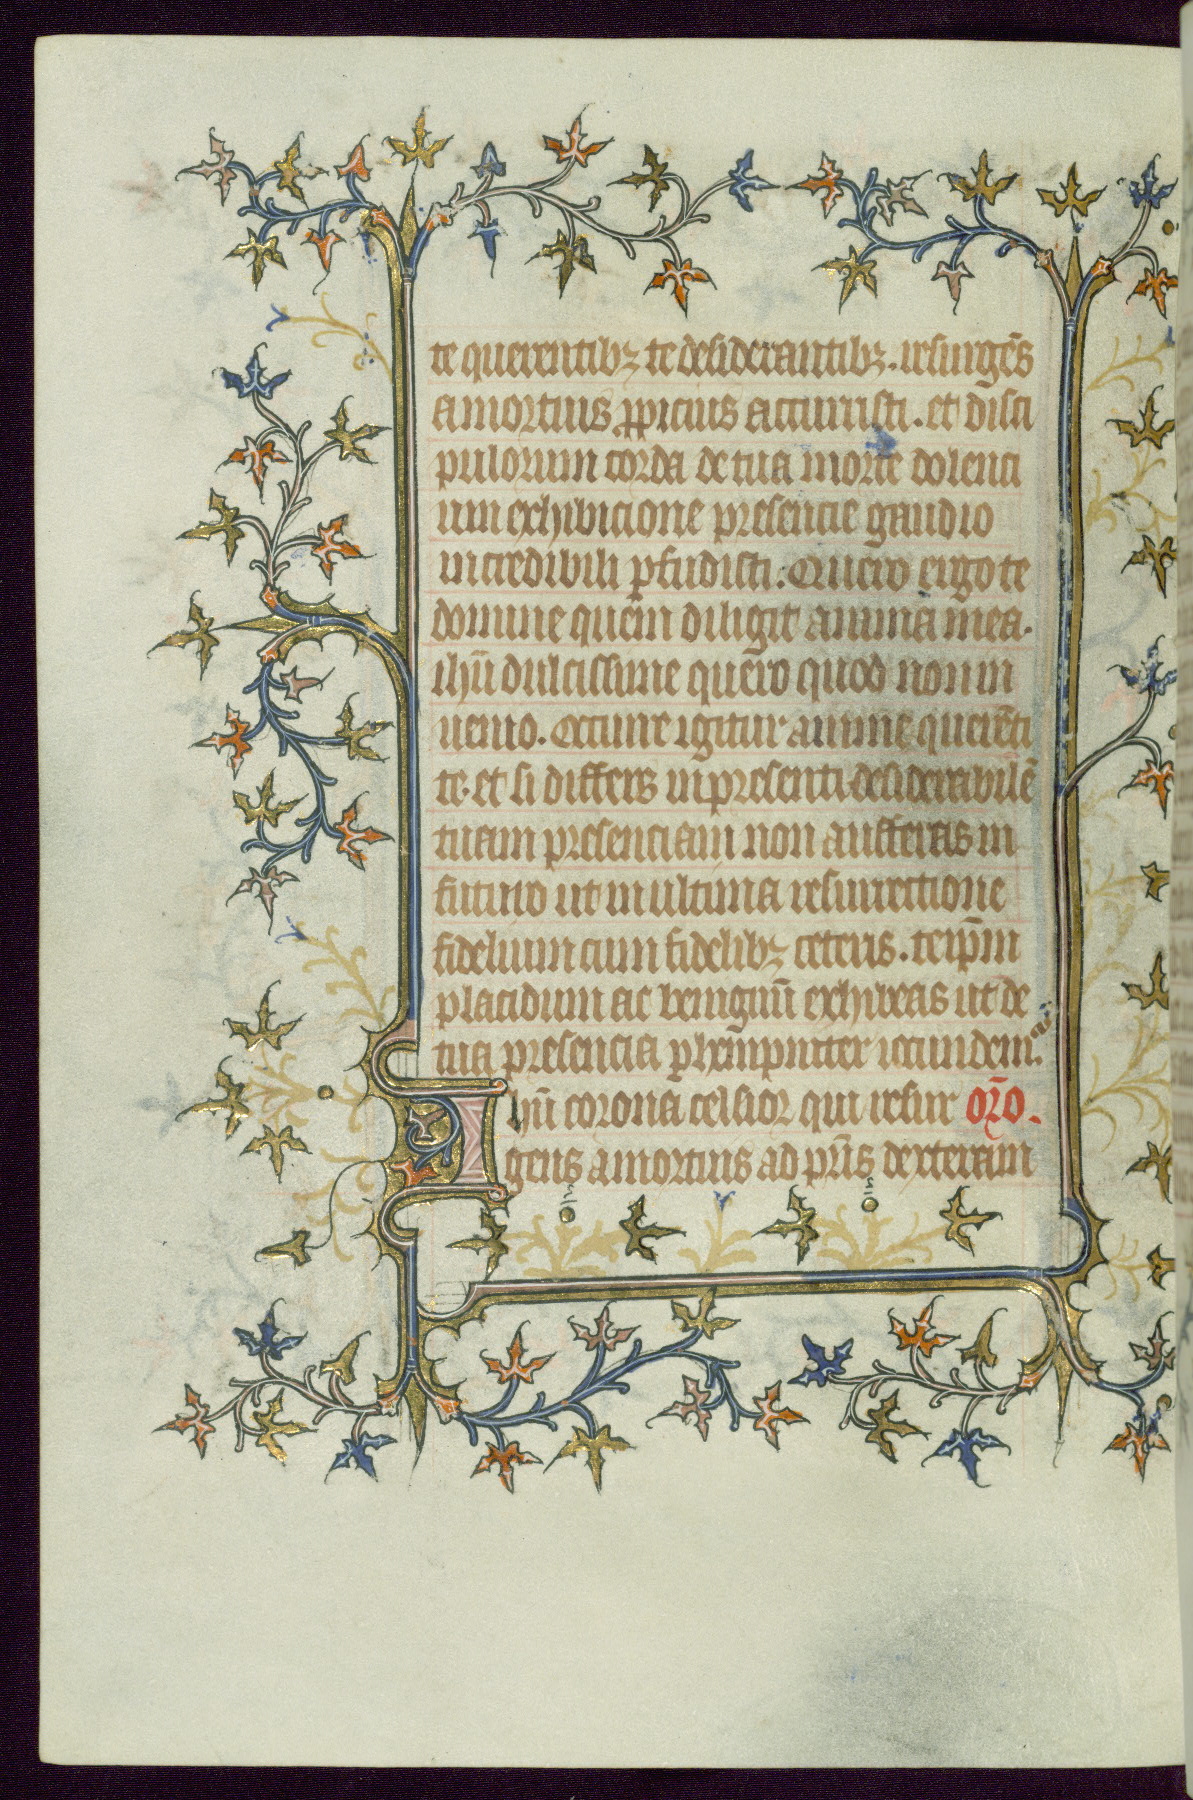 te querentibꝫ te desiderantibꝫ. resurgēs
a mortuis ꝓpicius accurristi. et disci
pulorum corda de tua morte dolenti
um exhibicione presencie gaudio
incredibili ꝑfudisti. Quero ergo te
domine quem diligit anima mea.
ihū dulcissime quero quod non in
uenio. Occurre igitur anime querēti
te. et si differs in presenti desiderabilē
tuam presenciam non aufferas in
futuro ut in ultima resurrectione
fidelium cum fidelibꝫ ceteris. teip̄m
placidum ac benignū exhibeas ut de
tua presencia ꝑhempniter iocundem
Ihū corona celsior qui resur or̄o.
gens a mortuis ad pr̄is dexteram